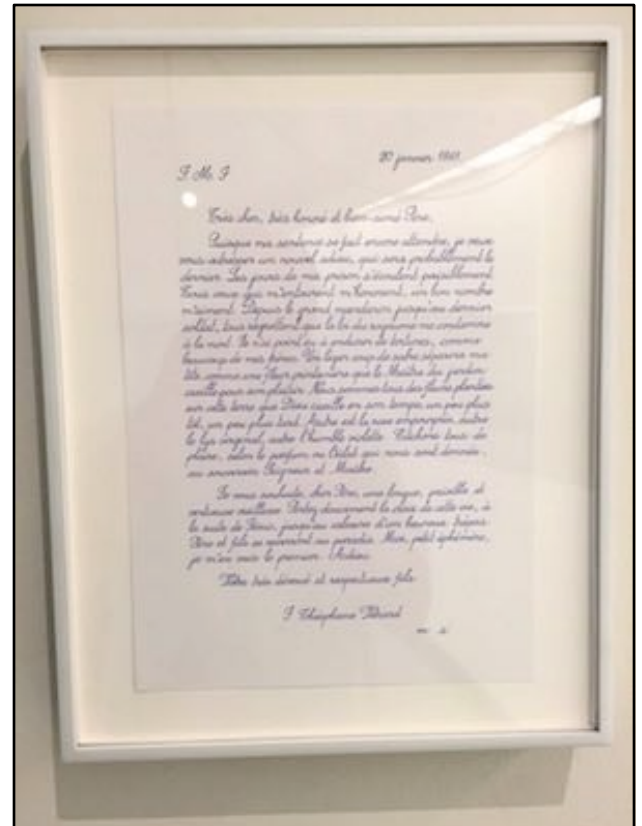 20 janvier 1861.
J. M. J.
Très cher, très honoré et bien-aimé Père,
Puisque ma sentence se fait encore attendre, je veux
vous adresser un nouvel adieu, qui sera probablement le
dernier. Les jours de ma prison s'écoulent paisiblement.
Tous ceux qui m'entourent m'honorent, un bon nombre
m'aiment. Depuis le grand mandarin jusqu'au dernier
soldat, tous regrettent que la loi du royaume me condamne
à la mort. Je n'ai point eu à endurer de tortures, comme
beaucoup de mes frères. Un léger coup de sabre séparera ma
tête, comme une fleur printanière que le Maître du jardin
cueille pour son plaisir. Nous sommes tous des fleurs plantées
sur cette terre que Dieu cueille en son temps, un peu plus
tôt, un peu plus tard. Autre est la rose empourprée, autre
le lys virginal, autre l'humble violette. Tâchons tous de
plaire, selon le parfum ou l'éclat qui nous sont donnés,
au souverain Seigneur et Maître.
Je vous souhaite, cher Père, une longue, paisible et
vertueuse vieillesse. Portez doucement la croix de cette vie, à
la suite de Jésus, jusqu'au calvaire d'un heureux trépas.
Père et fils se reverront au paradis. Moi, petit éphémère,
je m'en vais le premier. Adieu.
Votre très dévoué et respectueux fils.
J. Théophane Vénard